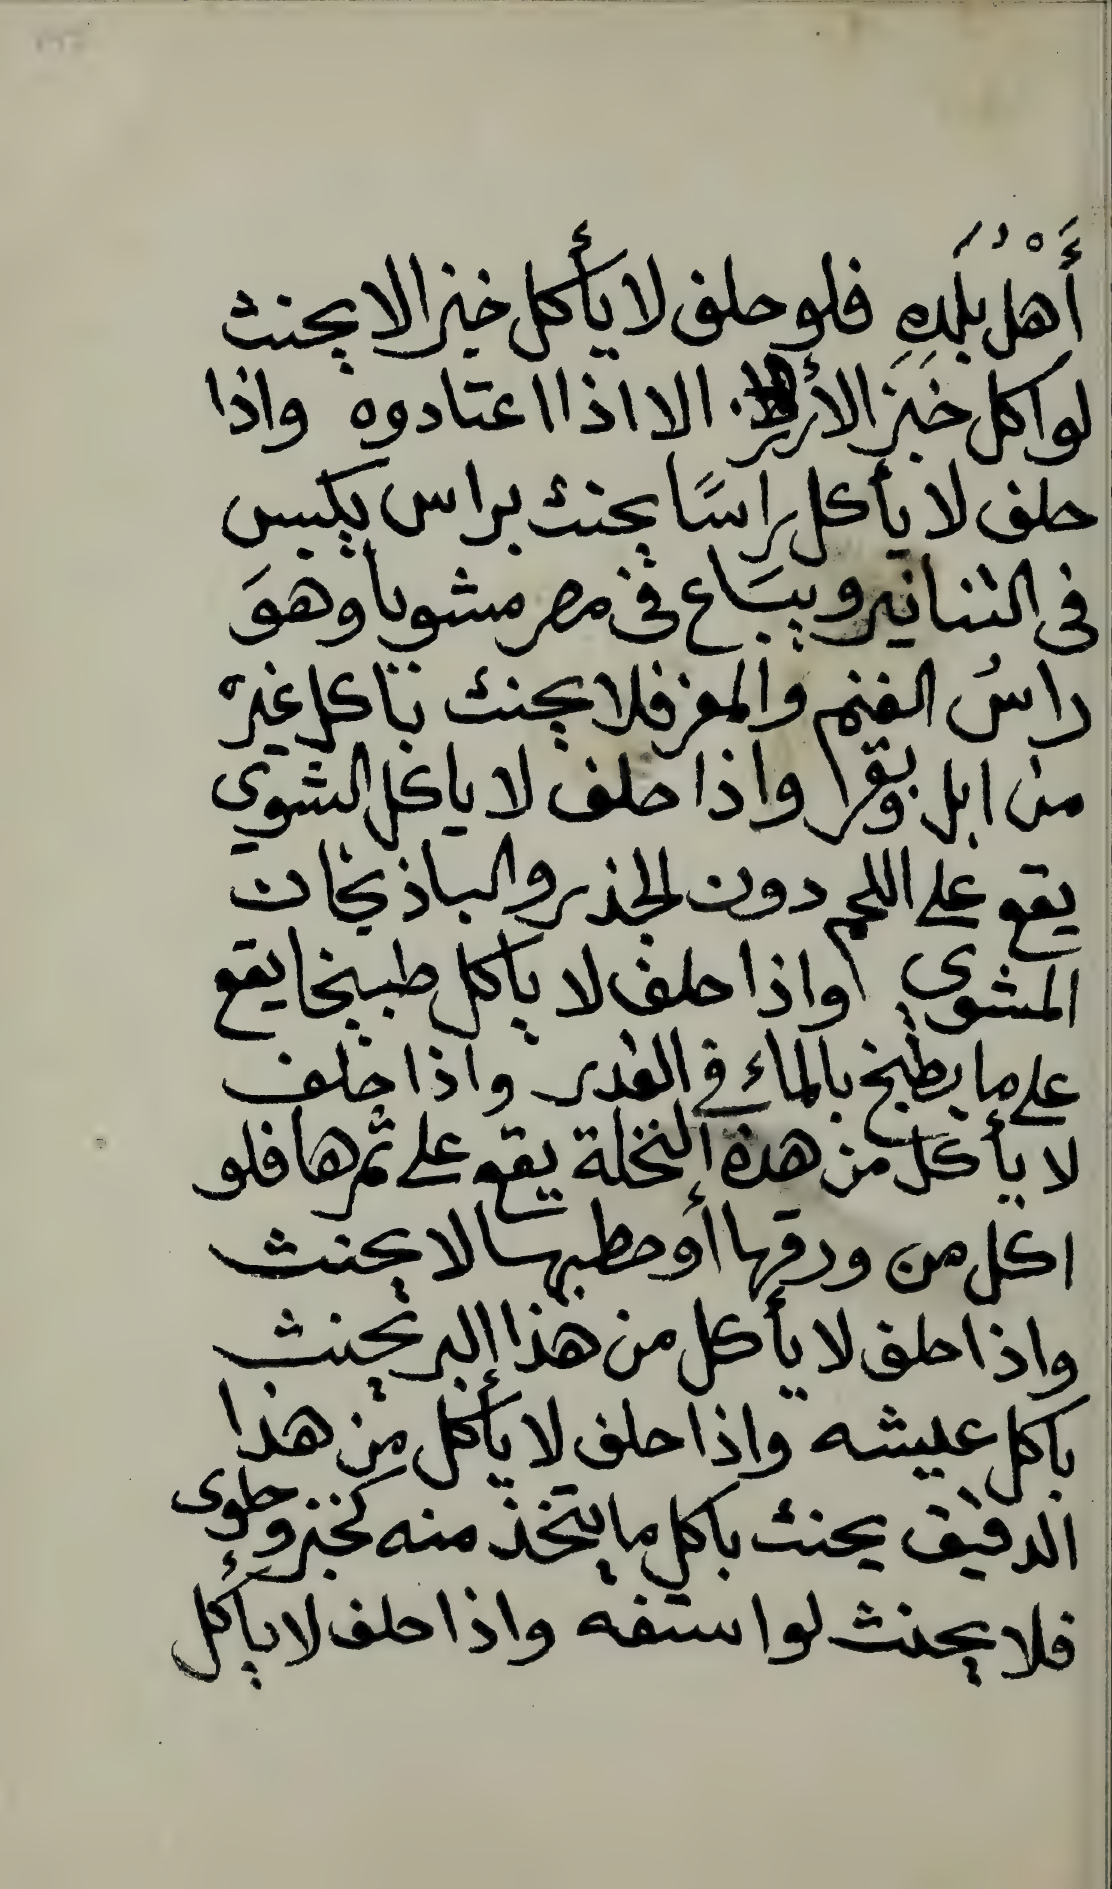 أَهْلُ بَلَدِهِ فلو حلف لا يأكل خبزا لا يحنث
لو اكل خبَزَ الأرز الا اذا اعتادوه واذا
حلف لا يأكل راسًا يحنث براس يكبس
فى التنانير ويبَاع فى مصر مشويا وهوَ
راسُ الغنم والمعز فلا يحنث بأكل غيره
من ابل وبقر واذا حلف لا ياكل الشوي
يقع على اللحم دون الجذر والباذنجان
المشوي واذا حلف لا يأكل طبيخا يقع
على ما يطبخ بالماء في القدر واذا حلف
لا يأكل من هذه النخلة يقع على ثمرها فلو
اكل من ورقها أو حطبها لا يحنث
واذا حلف لا يأكل من هذا البر يحنث
باكل عيشه واذا حلف لا يأكل من هذا
الدقيق يحنث باكل ما يتخذ منه كخبز وحلوى
فلا يحنث لو استفه واذا حلف لا يأكل